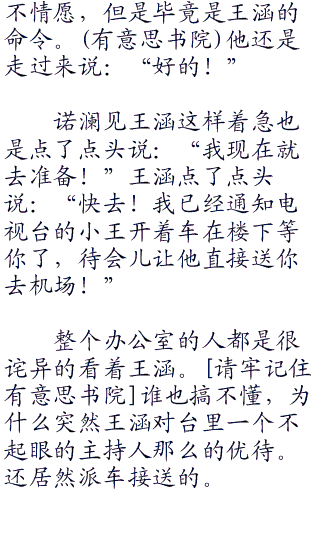 不情愿，但是毕竟是王涵的
命令。(有意思书院)他还是
走过来说：“好的！”
诺澜见王涵这样着急也
是点了点头说：“我现在就
去准备！”王涵点了点头
说：“快去！我已经通知电
视台的小王开着车在楼下等
你了，待会儿让他直接送你
去机场！”
整个办公室的人都是很
诧异的看着王涵。[请牢记住
有意思书院]谁也搞不懂，为
什么突然王涵对台里一个不
起眼的主持人那么的优待。
还居然派车接送的。